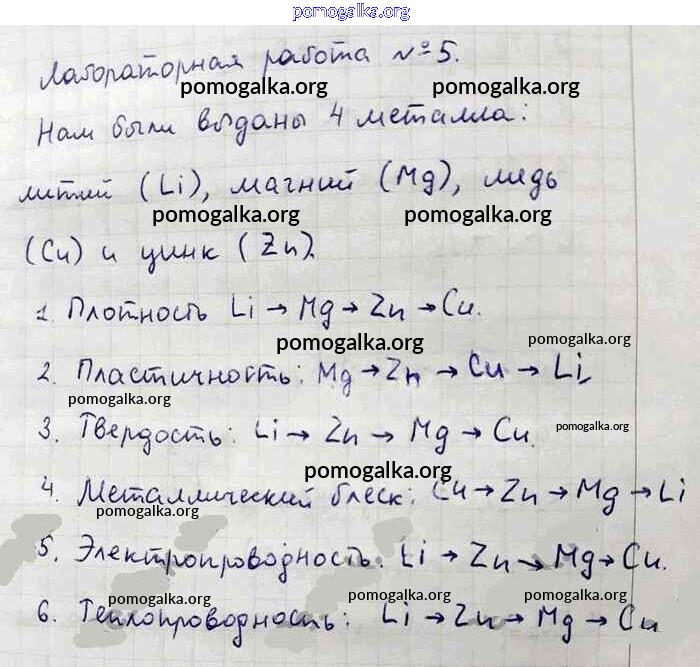 pomogalka.org
Лабораторная работа №5.
pomogalka.org pomogalka.org
Нам были выданы 4 металла:
литий (Li), магний (Mg), медь
pomogalka.org pomogalka.org
(Cu) и цинк (Zn).
1. Плотность Li → Mg → Zn → Cu.
pomogalka.org pomogalka.org
2. Пластичность: Mg → Zn → Cu → Li
pomogalka.org
3. Твердость: Li → Zn → Mg → Cu.
pomogalka.org
pomogalka.org
4. Металлический блеск: Cu → Zn → Mg → Li
pomogalka.org
5. Электропроводность: Li → Zn → Mg → Cu.
pomogalka.org pomogalka.org pomogalka.org
6. Теплопроводность: Li → Zn → Mg → Cu